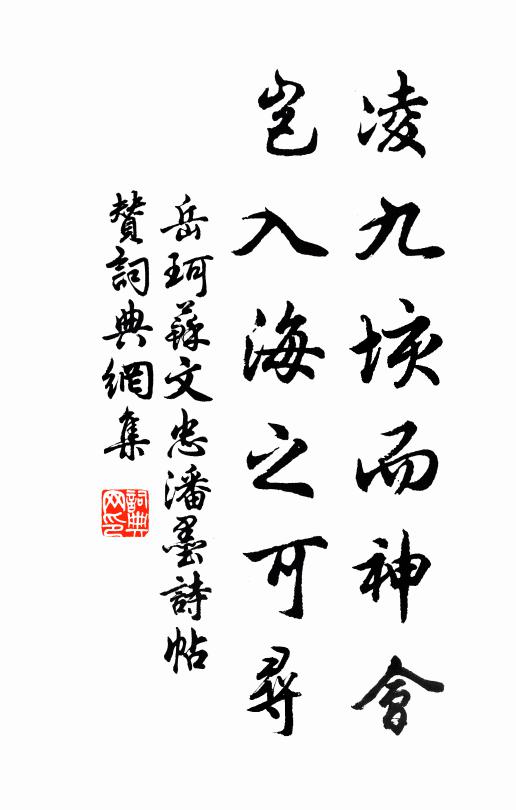 凌九垓而神會
豈入海之可尋
岳珂蘇文忠潘墨詩帖
贊詞典網集
詞典网印